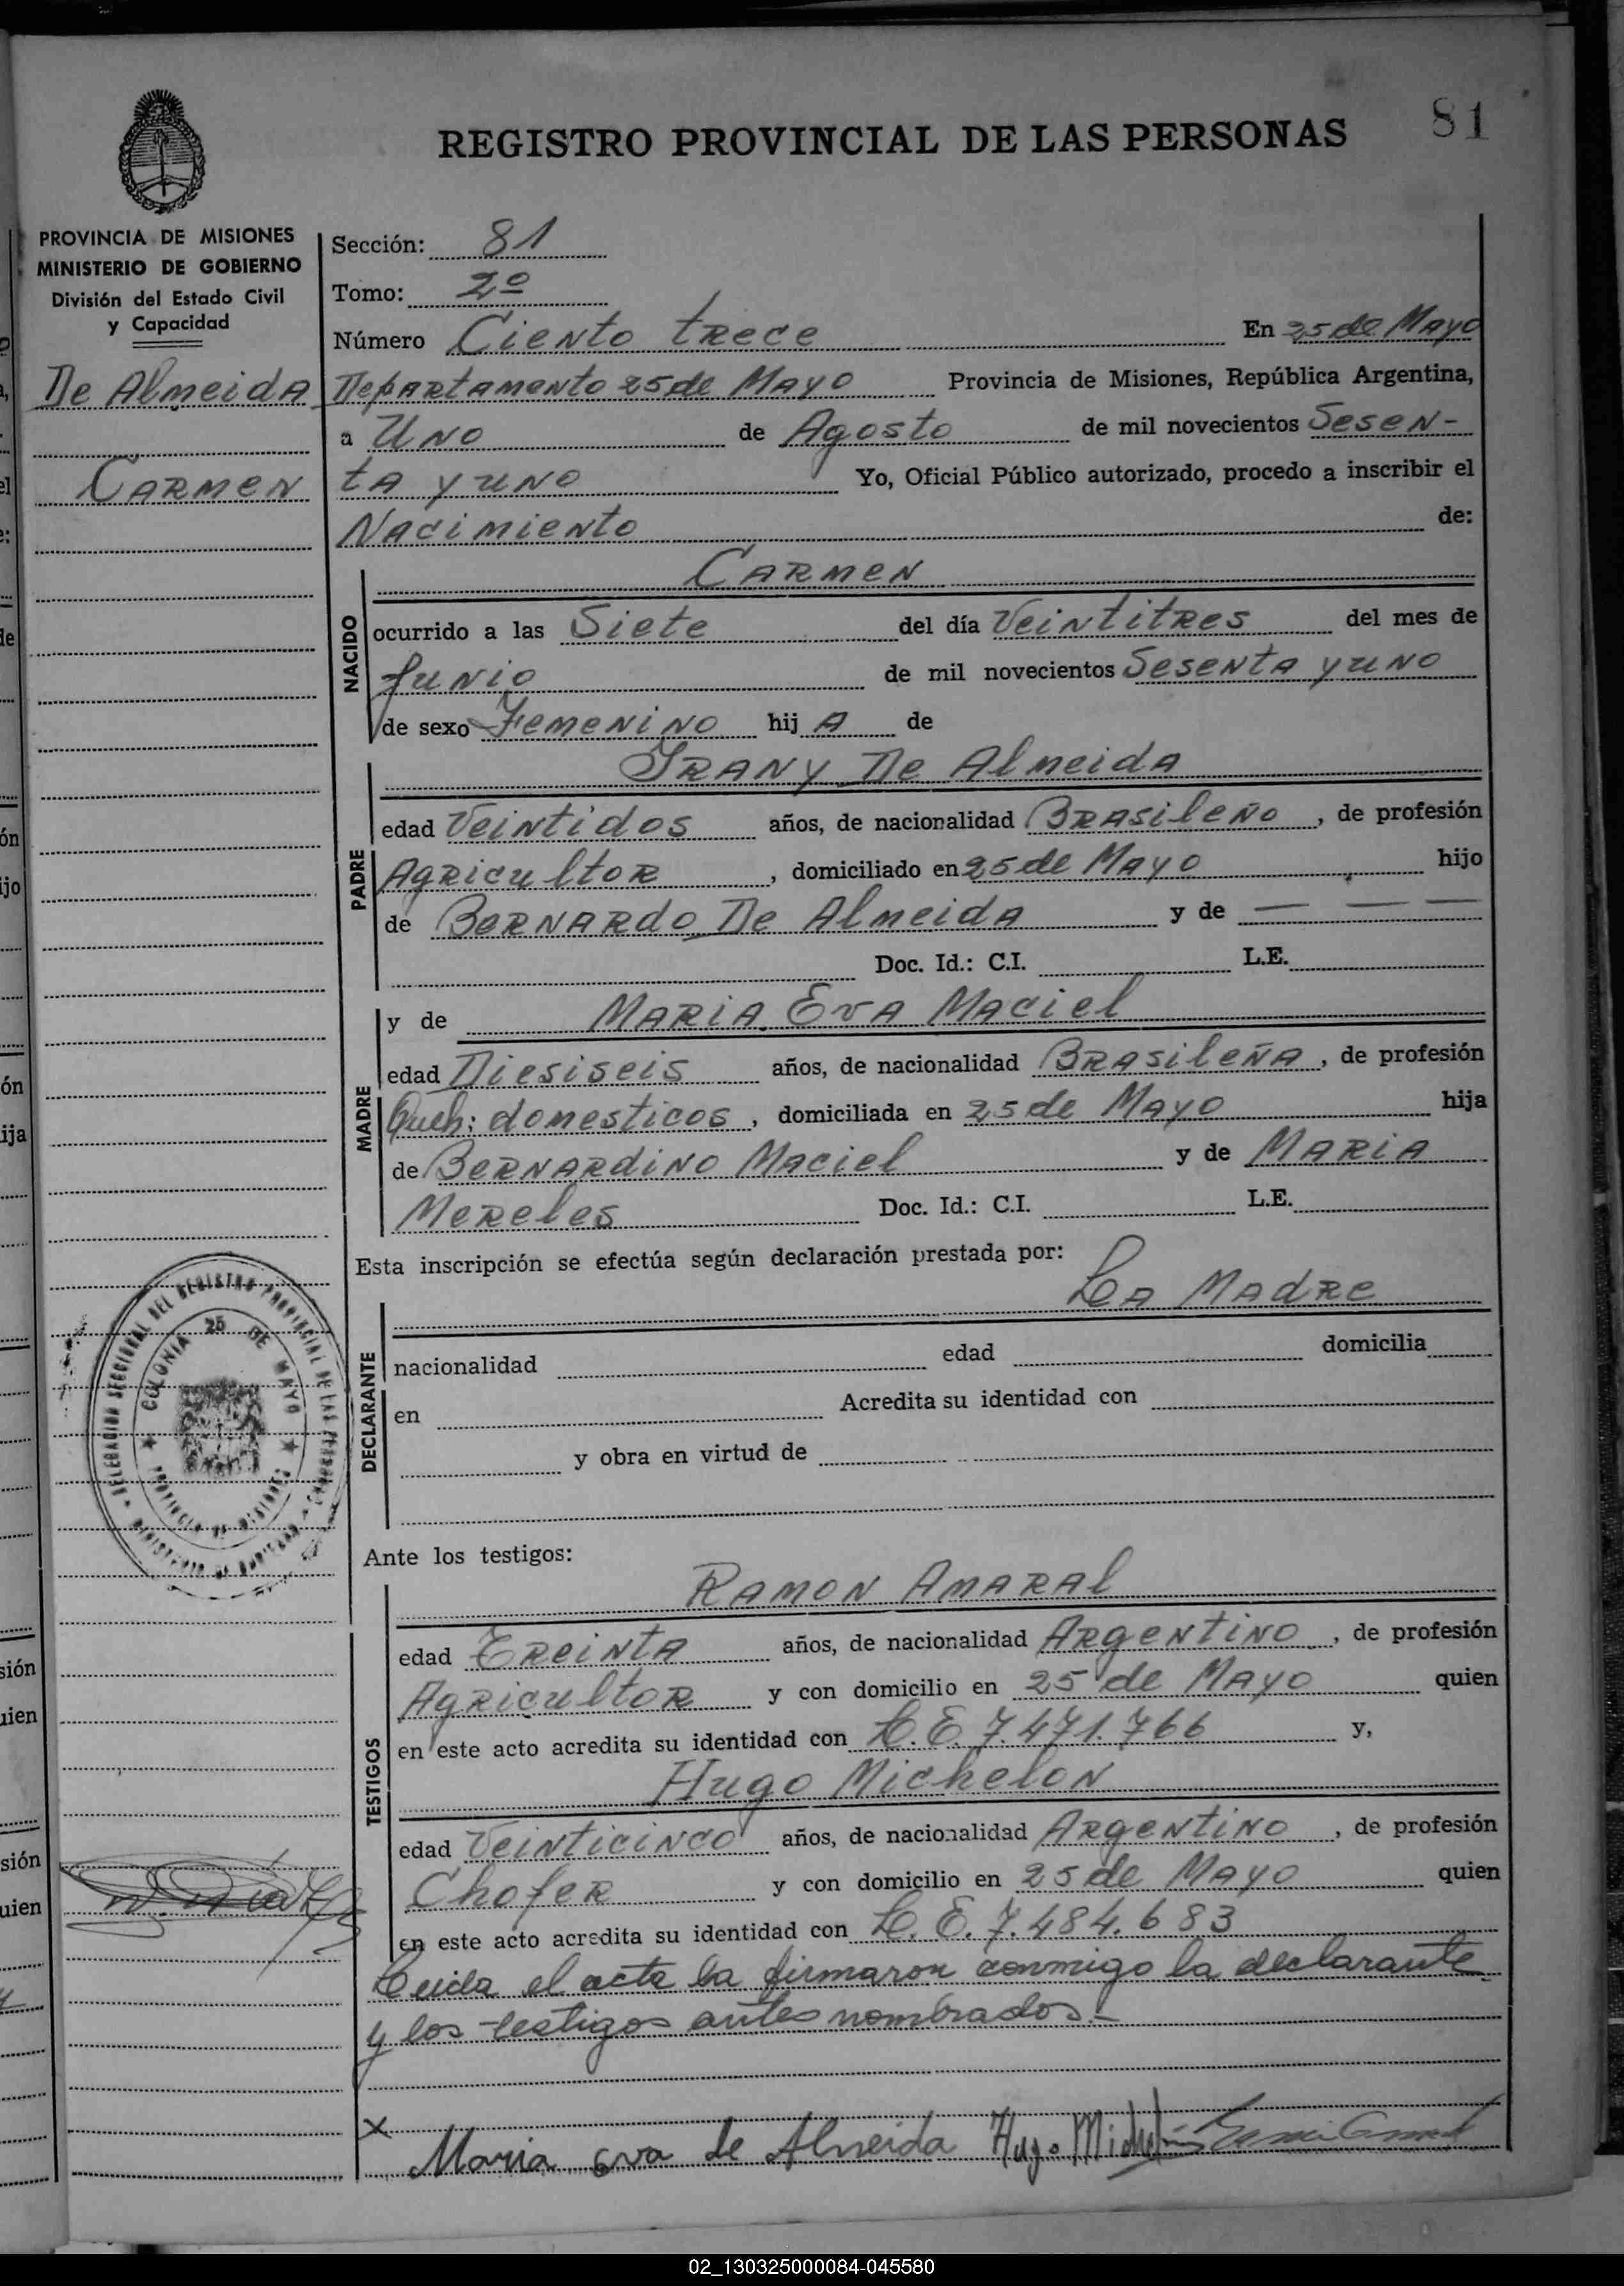 81
REGISTRO PROVINCIAL DE LAS PERSONAS
PROVINCIA DE MISIONES
MINISTERIO DE GOBIERNO
División del Estado Civil
y Capacidad
De Almeida
Carmen
Sección: 81
Tomo: 2º
Número Ciento trece En 25 de Mayo
Departamento 25 de Mayo Provincia de Misiones, República Argentina,
a Uno de Agosto de mil novecientos Sesen-
ta y uno Yo, Oficial Público autorizado, procedo a inscribir el
Nacimiento de:
NACIDO
Carmen
ocurrido a las Siete del día Veintitres del mes de
Junio de mil novecientos Sesenta y uno
de sexo Femenino hij A de
PADRE
Irany De Almeida
edad Veintidos años, de nacionalidad Brasileño, de profesión
Agricultor, domiciliado en 25 de Mayo hijo
de Bernardo De Almeida y de — — —
Doc. Id.: C.I. L.E.
MADRE
y de Maria Eva Maciel
edad Diesiseis años, de nacionalidad Brasileña, de profesión
Queh: domesticos, domiciliada en 25 de Mayo hija
de Bernardino Maciel y de Maria
Mereles Doc. Id.: C.I. L.E.
Esta inscripción se efectúa según declaración prestada por:
La Madre
DECLARANTE
nacionalidad edad domicilia
en Acredita su identidad con
y obra en virtud de
DELEGACION SECCIONAL DEL REGISTRO PROVINCIAL DE LAS PERSONAS
COLONIA 25 DE MAYO
PROVINCIA DE MISIONES
Ante los testigos:
TESTIGOS
Ramon Amaral
edad Treinta años, de nacionalidad Argentino, de profesión
Agricultor y con domicilio en 25 de Mayo quien
en este acto acredita su identidad con L.E. 7.471.766 y,
Hugo Michelon
edad Veinticinco años, de nacionalidad Argentino, de profesión
Chofer y con domicilio en 25 de Mayo quien
en este acto acredita su identidad con L.E. 7.484.683
Leida el acta la firmaron conmigo la declarante
y los testigos antes nombrados.-
x
Maria eva de Almeida Hugo Michelon
02_130325000084-045580